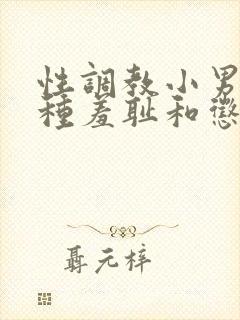 性調教小男
種羞耻和懲
聶元梓